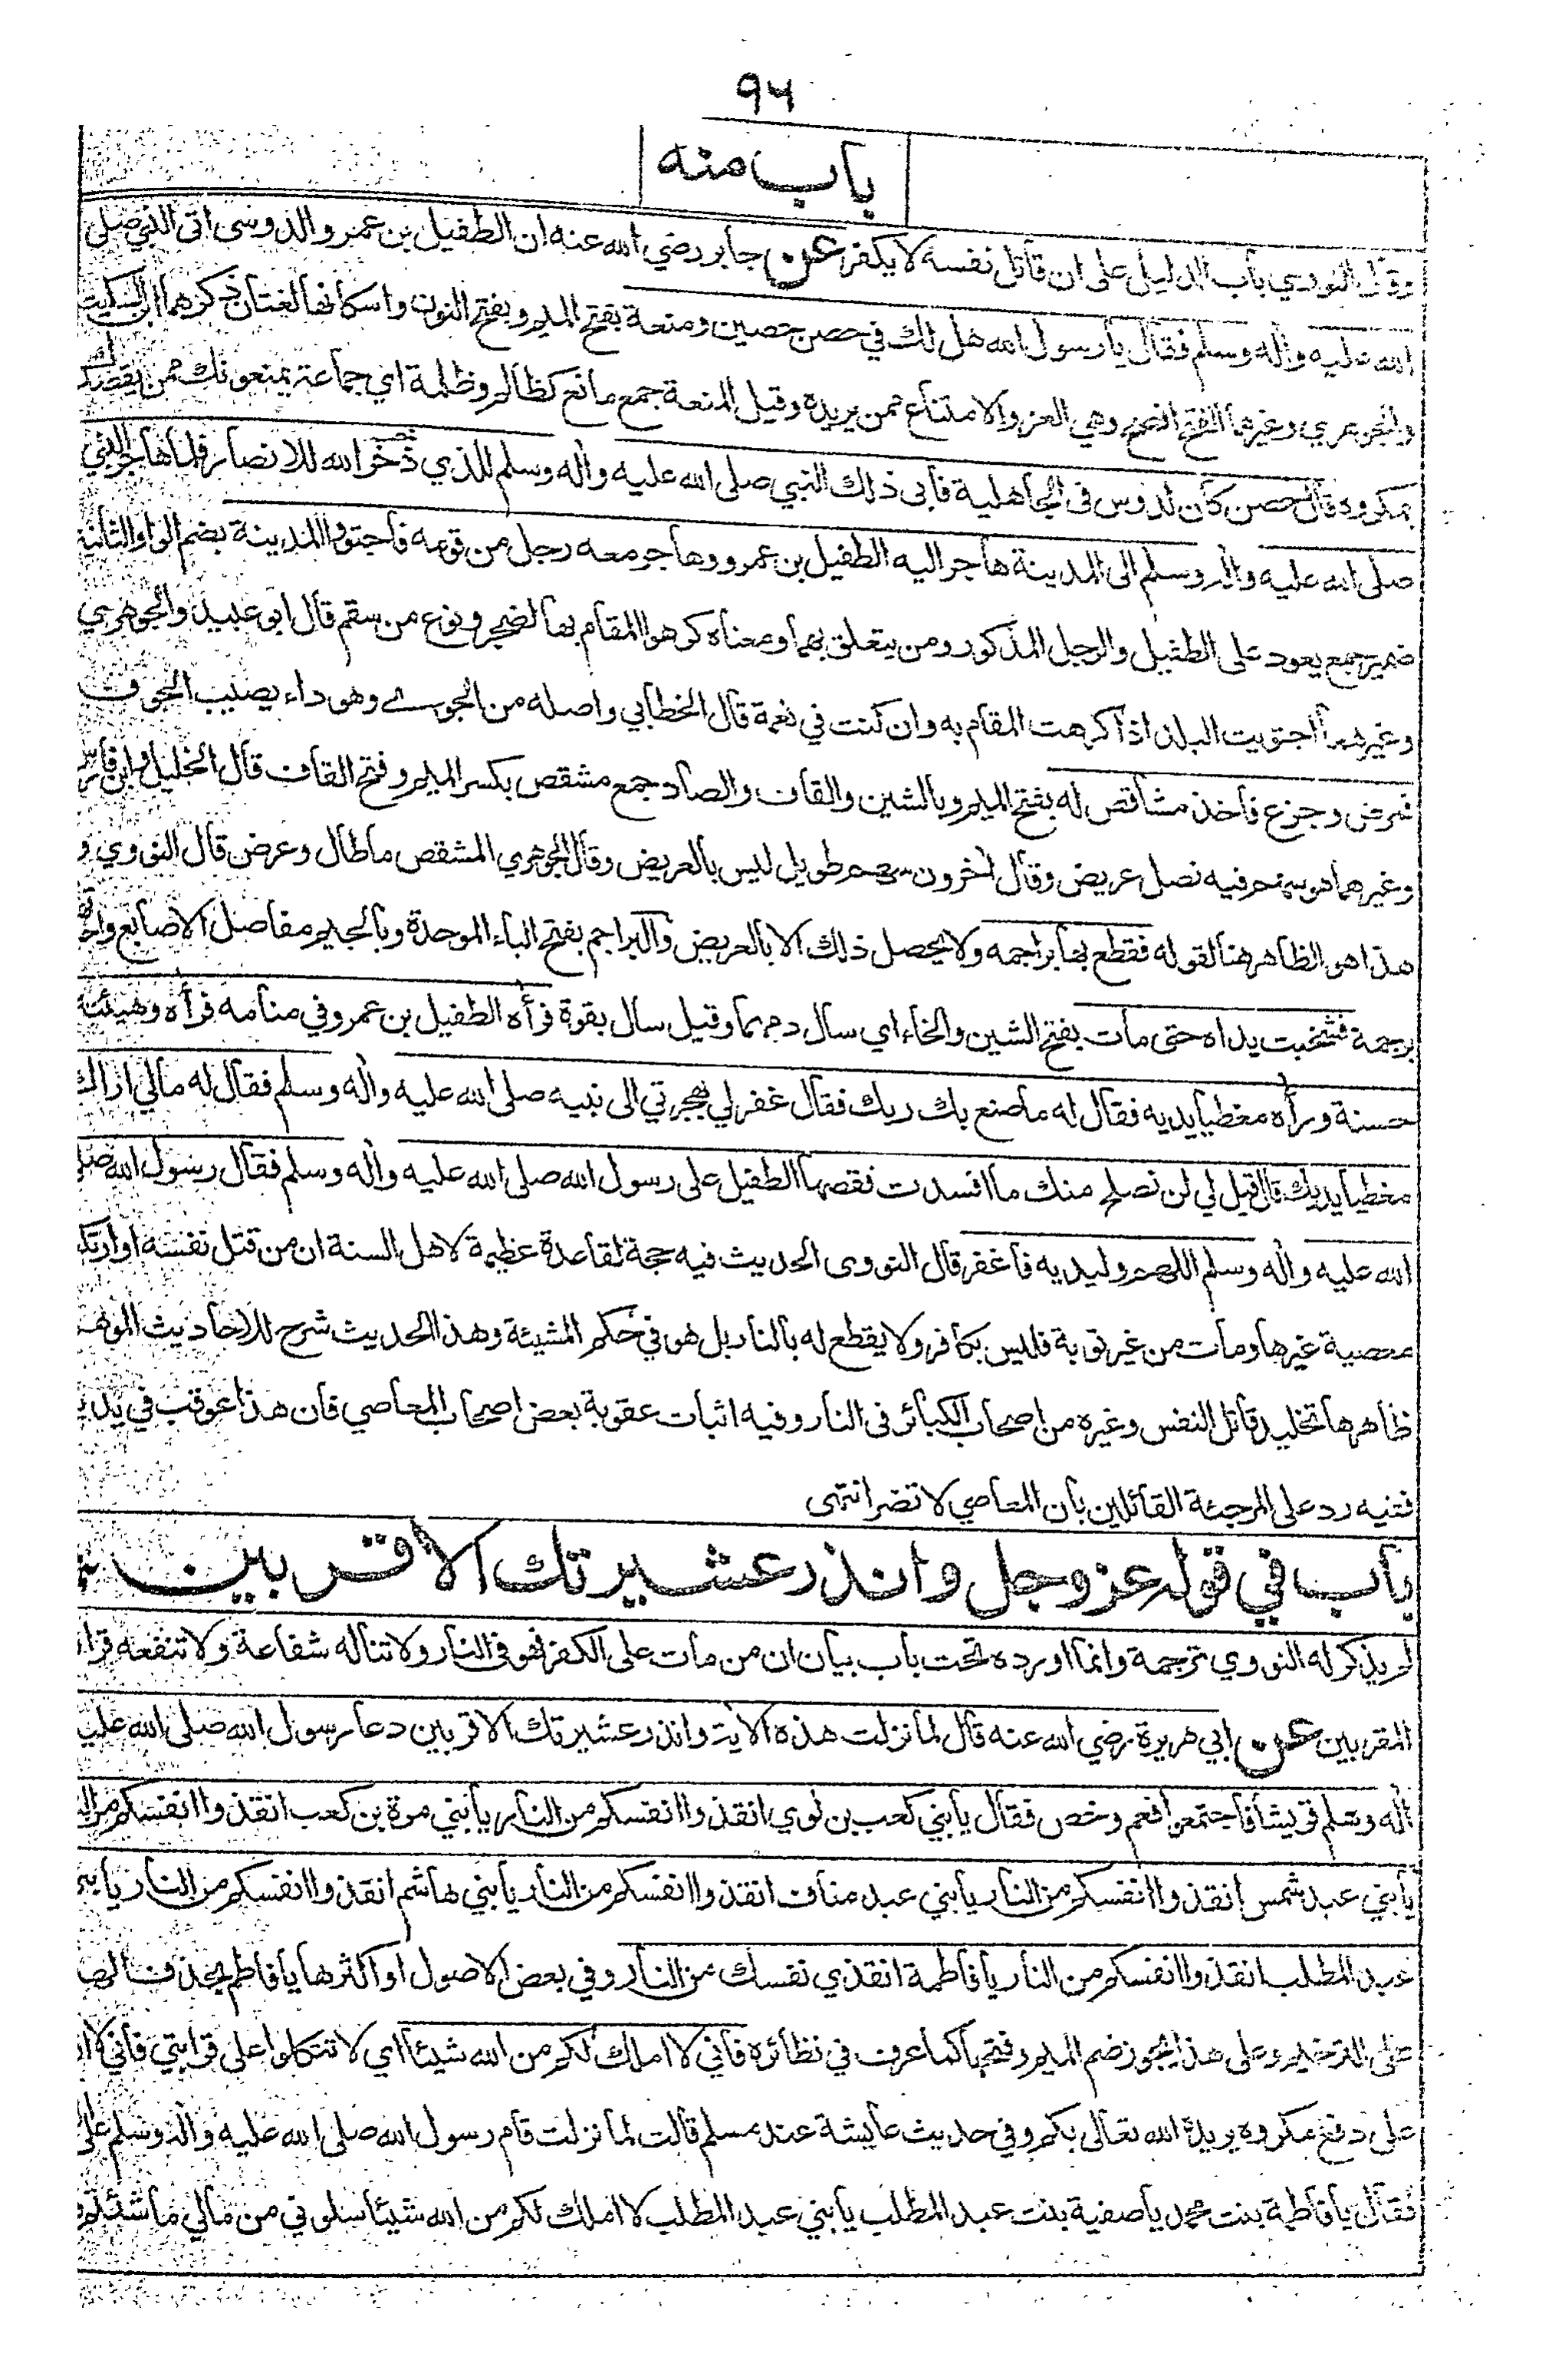 ۹۴
باب منه
وقال النووي باب الدليل على ان قاتل نفسه لا يكفر عن جابر رضي الله عنه ان الطفيل بن عمرو الدوسي اتى النبي صلى
الله عليه واله وسلم فقال يا رسول الله هل لك في حصن حصين ومنعة بفتح الميم وبفتح النون واسكانها لغتان ذكرهما ابن السكيت
والجوهري وغيرهما الفتح افصح وهي العز والامتناع ممن يريده وقيل المنعة جمع مانع كظالم وظلمة اي جماعة يمنعونك ممن يقصدك
بمكروه قال حصن كان لدوس في الجاهلية فابى ذلك النبي صلى الله عليه واله وسلم للذي ذخر الله للانصار فلما هاجر النبي
صلى الله عليه واله وسلم الى المدينة هاجر اليه الطفيل بن عمرو وهاجر معه رجل من قومه فاجتووا المدينة بضم الواو الثانية
ضمير جمع يعود على الطفيل والرجل المذكور ومن يتعلق بهما ومعناه كرهوا المقام بها لضجر ونوع من سقم قال ابو عبيد والجوهري
وغيرهما اجتويت البلد اذا كرهت المقام به وان كنت في نعمة قال الخطابي واصله من الجوى وهو داء يصيب الجوف
فمرض وجزع فاخذ مشاقص له بفتح الميم وبالشين والقاف والصاد جمع مشقص بكسر الميم وفتح القاف قال الخليل وابن فارس
وغيرهما هو سهم فيه نصل عريض وقال اخرون سهم طويل ليس بالعريض وقال الجوهري المشقص ما طال وعرض قال النووي و
هذا هو الظاهر هنا لقوله فقطع بها براجمه ولا يحصل ذلك الا بالعريض والبراجم بفتح الباء الموحدة وبالجيم مفاصل الاصابع
برجمة فشخبت يداه حتى مات بفتح الشين والخاء اي سال دمهما وقيل سال بقوة فرأه الطفيل بن عمرو في منامه فرأه وهيئته
حسنة ورأه مغطيا يديه فقال له ما صنع بك ربك فقال غفر لي بهجرتي الى نبيه صلى الله عليه واله وسلم فقال له مالي اراك
مغطيا يديك قال قيل لي لن نصلح منك ما افسدت فقصها الطفيل على رسول الله صلى الله عليه واله وسلم فقال رسول الله صلى
الله عليه واله وسلم اللهم وليديه فاغفر قال النووي الحديث فيه حجة لقاعدة عظيمة لاهل السنة ان من قتل نفسه او ارتكب
معصية غيرها ومات من غير توبة فليس بكافر ولا يقطع له بالنار بل هو في حكم المشيئة وهذا الحديث شرح للاحاديث الموهم
ظاهرها تخليد قاتل النفس وغيره من اصحاب الكبائر في النار وفيه اثبات عقوبة بعض اصحاب المعاصي فان هذا عوقب في يديه
ففيه رد على المرجئة القائلين بان المعاصي لا تضر انتهى
باب في قوله عز وجل وانذر عشيرتك الاقربين
لم يذكر له النووي ترجمة وانما اورده تحت باب بيان ان من مات على الكفر فهو في النار ولا تناله شفاعة ولا تنفعه قرابة
المقربين عن ابي هريرة رضي الله عنه قال لما نزلت هذه الاية وانذر عشيرتك الاقربين دعا رسول الله صلى الله عليه
واله وسلم قريشا فاجتمعوا فعم وخص فقال يا بني كعب بن لوي انقذوا انفسكم من النار يا بني مرة بن كعب انقذوا انفسكم من النار
يا بني عبد شمس انقذوا انفسكم من النار يا بني عبد مناف انقذوا انفسكم من النار يا بني هاشم انقذوا انفسكم من النار يا بني
عبد المطلب انقذوا انفسكم من النار يا فاطمة انقذي نفسك من النار وفي بعض الاصول او اكثرها يا فاطم بحذف الهاء
على الترخيم وعلى هذا يجوز ضم الميم وفتحها كما عرف في نظائره فاني لا املك لكم من الله شيئا اي لا تتكلوا على قرابتي فاني لا
على دفع مكروه يريده الله تعالى بكم وفي حديث عايشة عند مسلم قالت لما نزلت قام رسول الله صلى الله عليه واله وسلم على
فقال يا فاطمة بنت محمد يا صفية بنت عبد المطلب يا بني عبد المطلب لا املك لكم من الله شيئا سلوني من مالي ما شئتم